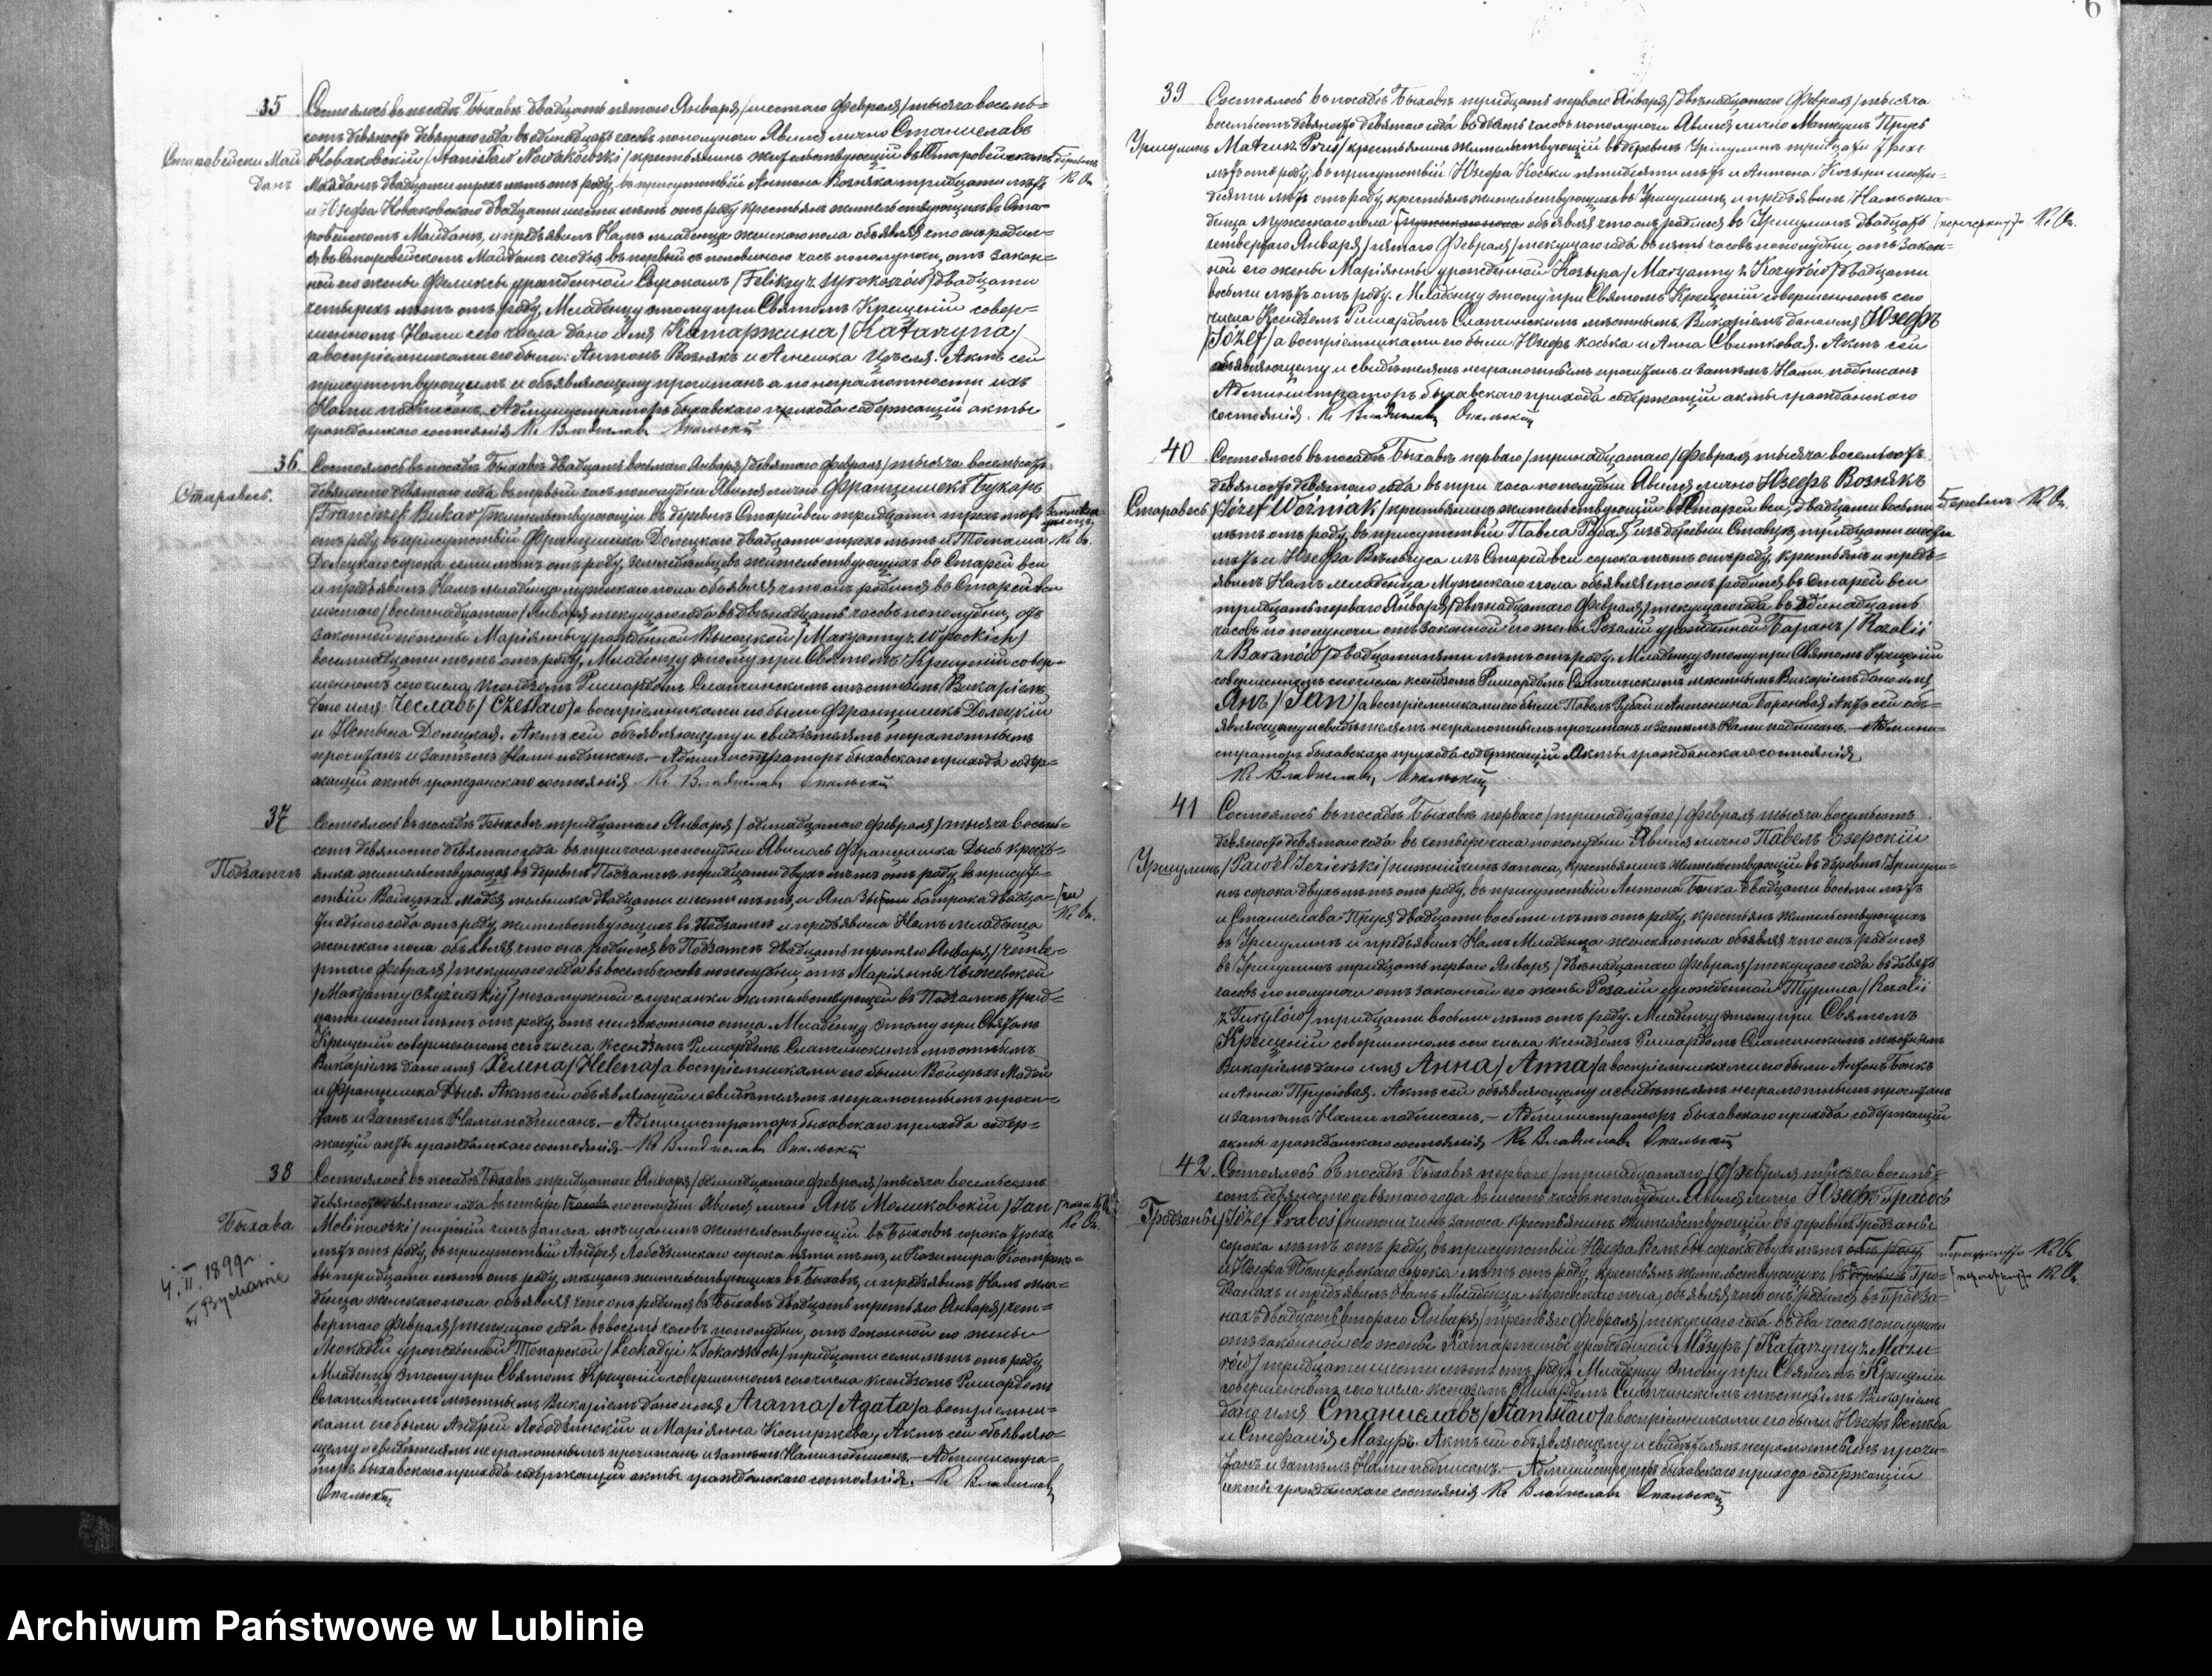 6
35
Состоялось въ посадѣ Быхавѣ двадцать пятаго Января /шестаго Февраля/ тысяча восемь=
сотъ девяносто девятаго года въ одинадцать часовъ пополуночи Явился лично Станиславъ
Старавейски Май
данъ
Новаковскій /Stanisław Nowakowski/ крестьянинъ жительствующій въ Старовейскомъ
Майданѣ двадцати трехъ лѣтъ отъ роду, въ присутствіи Антона Возняка тридцати лѣтъ
и Юзефа Новаковскаго двадцати шести лѣтъ отъ роду крестьянъ жительствующихъ въ Ста=
ровейскомъ Майданѣ, и предъявилъ Намъ младенца женскаго пола объявляя что онъ родил=
ся въ Старовейскомъ Майданѣ сегодня въ первый съ половиною часъ пополуночи, отъ закон=
ной его жены Феликсы урожденной
четырехъ лѣтъ отъ роду, Младенцу этому при Святомъ Крещеніи совер=
шенномъ Нами сего числа дано имя Катаржина /Katarzyna/
а воспріемниками его были: Антонъ Вознякъ и Агнешка Цѣсля. Актъ сей
присутствующимъ и объявляющему прочитанъ а по неграмотности ихъ
Нами подписанъ. Администраторъ быхавскаго прихода содержащій акты
гражданскаго состоянія Кс Владиславъ Опальскій
36
Состоялось въ посадѣ Быхавѣ двадцать восьмаго Января /девятаго Февраля/ тысяча восемьсотъ
Старавесь.
девяносто девятаго года въ первый часъ пополудни Явился лично Францишекъ Букаръ
/Franciszek Bukar/ жительствующій въ деревнѣ Старейвси тридцати трехъ лѣтъ
отъ роду, въ присутствіи Францишка Долецкаго двадцати трехъ лѣтъ и Томаша
Долецкаго сорока семи лѣтъ отъ роду, земледѣльцевъ жительствующихъ въ Старей вси
и предъявилъ Намъ младенца мужескаго пола объявляя что онъ родился въ Старейвси
шестаго /восемнадцатаго/ Января текущаго года въ двѣнадцать часовъ пополудни, отъ
законной его жены Маріянны урожденной Высоцкой /Maryanny z Wysockich/
восемнадцати лѣтъ отъ роду, Младенцу этому при Святомъ Крещеніи совер=
шенномъ сего числа Ксендзомъ Ришардомъ Слапчинскимъ мѣстнымъ Викаріемъ
дано имя: Чеславъ /Czesław/ а воспріемниками его были Францишекъ Долецкій
и Юстына Долецкая. Актъ сей объявляющему и свидѣтелямъ неграмотнымъ
прочитанъ и затѣмъ Нами подписанъ.— Администраторъ быхавскаго прихода содер=
жащій акты гражданскаго состоянія Кс Владиславъ Опальскій
37
Состоялось въ посадѣ Быхавѣ тридцатаго Января /одинадцатаго Февраля/ тысяча восемь=
сотъ девяносто девятаго года въ три часа пополудни Явилась Францишка Дысь кресть=
Подзамче
янка жительствующая въ деревнѣ Подзамче тридцати двухъ лѣтъ отъ роду, въ присут=
ствіи Войцѣха Мадея мельника двадцати шести лѣтъ, и Яна батрака двадца=
ти одного года отъ роду, жительствующихъ въ Подзамче и предъявила Намъ младенца
женскаго пола объявляя что онъ родился въ Подзамче двадцать третьяго Января /четве=
ртаго Февраля/ текущаго года въ восемь часовъ пополудни, отъ Маріянны Чыжевской
/Maryanny Czyżewskiej/ незамужной служанки жительствующей въ Подзамче трид=
цати шести лѣтъ отъ роду, отъ неизвѣстнаго отца. Младенцу этому при Святомъ
Крещеніи совершенномъ сего числа ксендзомъ Ришардомъ Слапчинскимъ мѣстнымъ
Викаріемъ дано имя Хелена /Helena/ а воспріемниками его были Войцѣхъ Мадей
и Францишка Дысь. Актъ сей объявляющей и свидѣтелямъ неграмотнымъ прочи=
танъ и затѣмъ Нами подписанъ.— Администраторъ быхавскаго прихода содер=
жащій акты гражданскаго состоянія.— Кс Владиславъ Опальскій
38
Состоялось въ посадѣ Быхавѣ тридцатаго Января /одинадцатаго Февраля/ тысяча восемьсотъ
девяносто девятаго года въ четыре пополудни Явился лично Янъ Молиновскій /Jan
Быхава
Molinowski/ нижній чинъ запаса мѣщанинъ жительствующій въ Быхавѣ сорока трехъ
4. II. 1899 r.
w Bychawie
лѣтъ отъ роду, въ присутствіи Андрея Лободзинскаго сорока пяти лѣтъ, и Казимира
тридцати лѣтъ отъ роду, мѣщанъ жительствующихъ въ Быхавѣ, и предъявилъ Намъ мла=
денца женскаго пола объявляя что онъ родился въ Быхавѣ двадцать третьяго Января /чет=
вертаго Февраля/ текущаго года въ восемь часовъ пополудни, отъ законной его жены
Леокадіи урожденной Токарской /Leokadyi z Tokarskich/ тридцати семи лѣтъ отъ роду
Младенцу этому при Святомъ Крещеніи совершенномъ сего числа ксендзомъ Ришардомъ
Слапчинскимъ мѣстнымъ Викаріемъ дано имя Агата /Agata/ а воспріемни=
ками его были Андрей Лободзинскій и Маріянна Актъ сей объявляю=
щему и свидѣтелямъ неграмотнымъ прочитанъ и затѣмъ Нами подписанъ.— Администра=
торъ быхавскаго прихода содержащій акты гражданскаго состоянія.— Кс Владиславъ
Опальскій
39
Состоялось въ посадѣ Быхавѣ тридцать перваго Января /двѣнадцатаго Февраля/ тысяча
восемьсотъ девяносто девятаго года въ часовъ пополуночи Явился лично Матеушъ Прусь
Уршулинъ
Mateusz Pruś/ крестьянинъ жительствующій въ деревнѣ Уршулинѣ тридцати трехъ
лѣтъ отъ роду, въ присутствіи Юзефа Коська пятидесяти лѣтъ и Антона Козыры шести=
десяти лѣтъ отъ роду, крестьянъ жительствующихъ въ Уршулинѣ, и предъявилъ Намъ мла=
денца мужескаго пола объявляя что онъ родился въ Уршулинѣ двадцать
/перечеркнуто Кс Оп.
четвертаго Января /пятаго Февраля/ текущаго года въ пять часовъ пополудни, отъ закон=
ной его жены Маріянны урожденной Козыра /Maryanny z Kozyrów/ двадцати
восьми лѣтъ отъ роду. Младенцу этому при Святомъ Крещеніи совершенномъ сего
числа Ксендзомъ Ришардомъ Слапчинскимъ мѣстнымъ Викаріемъ дано имя Юзефъ
/Józef/ а воспріемниками его были Юзефъ Коська и Анна Свитковая. Актъ сей
объявляющему и свидѣтелямъ неграмотнымъ прочитанъ и затѣмъ Нами подписанъ
Администраторъ быхавскаго прихода содержащій акты гражданскаго
состоянія. Кс Владиславъ Опальскій
40
Состоялось въ посадѣ Быхавѣ перваго /тринадцатаго/ Февраля тысяча восемьсотъ
девяносто девятаго года въ три часа пополудни Явился лично Юзефъ Вознякъ
Старавесь
/Józef Woźniak/ крестьянинъ жительствующій въ Старей вси, двадцати восьми
лѣтъ отъ роду, въ присутствіи Павла Рубая изъ деревни Ставекъ, тридцати шести
лѣтъ и Юзефа изъ Старейвси сорока лѣтъ отъ роду, крестьянъ и предъ=
явилъ Намъ младенца Мужескаго пола объявляя что онъ родился въ Старей вси
тридцать перваго Января /двѣнадцатаго Февраля/ текущаго года въ одинадцать
часовъ пополуночи отъ законной его жены Розаліи урожденной Баранъ /Rozalii
z Baranów/ двадцати пяти лѣтъ отъ роду. Младенцу этому при Святомъ Крещеніи
совершенномъ сего числа ксендзомъ Ришардомъ Слапчинскимъ мѣстнымъ Викаріемъ дано имя
Янъ /Jan/ а воспріемниками его были Павелъ Рубай и Антонина Барановая Актъ сей объ=
являющему и свидѣтелямъ неграмотнымъ прочитанъ и затѣмъ Нами подписанъ.— Админи=
страторъ быхавскаго прихода содержащій Акты гражданскаго состоянія
Кс Владиславъ Опальскій
41
Состоялось въ посадѣ Быхавѣ перваго /тринадцатаго/ Февраля тысяча восемьсотъ
девяносто девятаго года въ четыре часа пополудни Явился лично Павелъ Езерскій
Уршулинъ
/Paweł Jezierski/ нижній чинъ запаса, крестьянинъ жительствующій въ деревнѣ Уршули=
нѣ сорока двухъ лѣтъ отъ роду, въ присутствіи Антона Бонка двадцати восьми лѣтъ
и Станислава Пруся двадцати восьми лѣтъ отъ роду, крестьянъ жительствующихъ
въ Уршулинѣ и предъявилъ Намъ Младенца женскаго пола объявляя что онъ родился
въ Уршулинѣ тридцать перваго Января /двѣнадцатаго Февраля/ текущаго года въ девять
часовъ пополуночи отъ законной его жены Розаліи урожденной Турыла /Rozalii
z Turyłów/ тридцати восьми лѣтъ отъ роду. Младенцу этому при Святомъ
Крещеніи совершенномъ сего числа ксендзомъ Ришардомъ Слапчинскимъ мѣстнымъ
Викаріемъ дано имя Анна /Anna/ а воспріемниками его были Антонъ Бонкъ
и Анна Прусіовая. Актъ сей объявляющему и свидѣтелямъ неграмотнымъ прочитанъ
и затѣмъ Нами подписанъ.— Администраторъ быхавскаго прихода содержащій
акты гражданскаго состоянія Кс Владиславъ Опальскій
42.
Состоялось въ посадѣ Быхавѣ перваго /тринадцатаго/ Февраля тысяча восемь=
сотъ девяносто девятаго года въ шесть часовъ пополудни Явился лично Юзефъ Грабось
Гродзаны
/Józef Graboś/ нижній чинъ запаса крестьянинъ жительствующій въ деревнѣ Гродзаны
сорока лѣтъ отъ роду, въ присутствіи Юзефа сорока двухъ лѣтъ отъ роду,
и Юзефа Піотровскаго сорока лѣтъ отъ роду, крестьянъ жительствующихъ въ деревнѣ Гро=
дзанахъ и предъявилъ Намъ Младенца мужескаго пола, объявляя что онъ родился въ Гродза=
нахъ двадцать втораго Января /третьяго Февраля/ текущаго года въ два часа пополуночи
отъ законной его жены Катаржины урожденной Мазуръ /Katarzyny z Mazu=
rów/ тридцати шести лѣтъ отъ роду. Младенцу этому при Святомъ Крещеніи
совершенномъ сего числа ксендзомъ Ришардомъ Слапчинскимъ мѣстнымъ Викаріемъ
дано имя Станиславъ /Stanisław/ а воспріемниками его были Юзефъ
и Стефанія Мазуръ. Актъ сей объявляющему и свидѣтелямъ неграмотнымъ прочи=
танъ и затѣмъ Нами подписанъ.— Администраторъ быхавскаго прихода содержащій
акты гражданскаго состоянія Кс Владиславъ Опальскій
Archiwum Państwowe w Lublinie